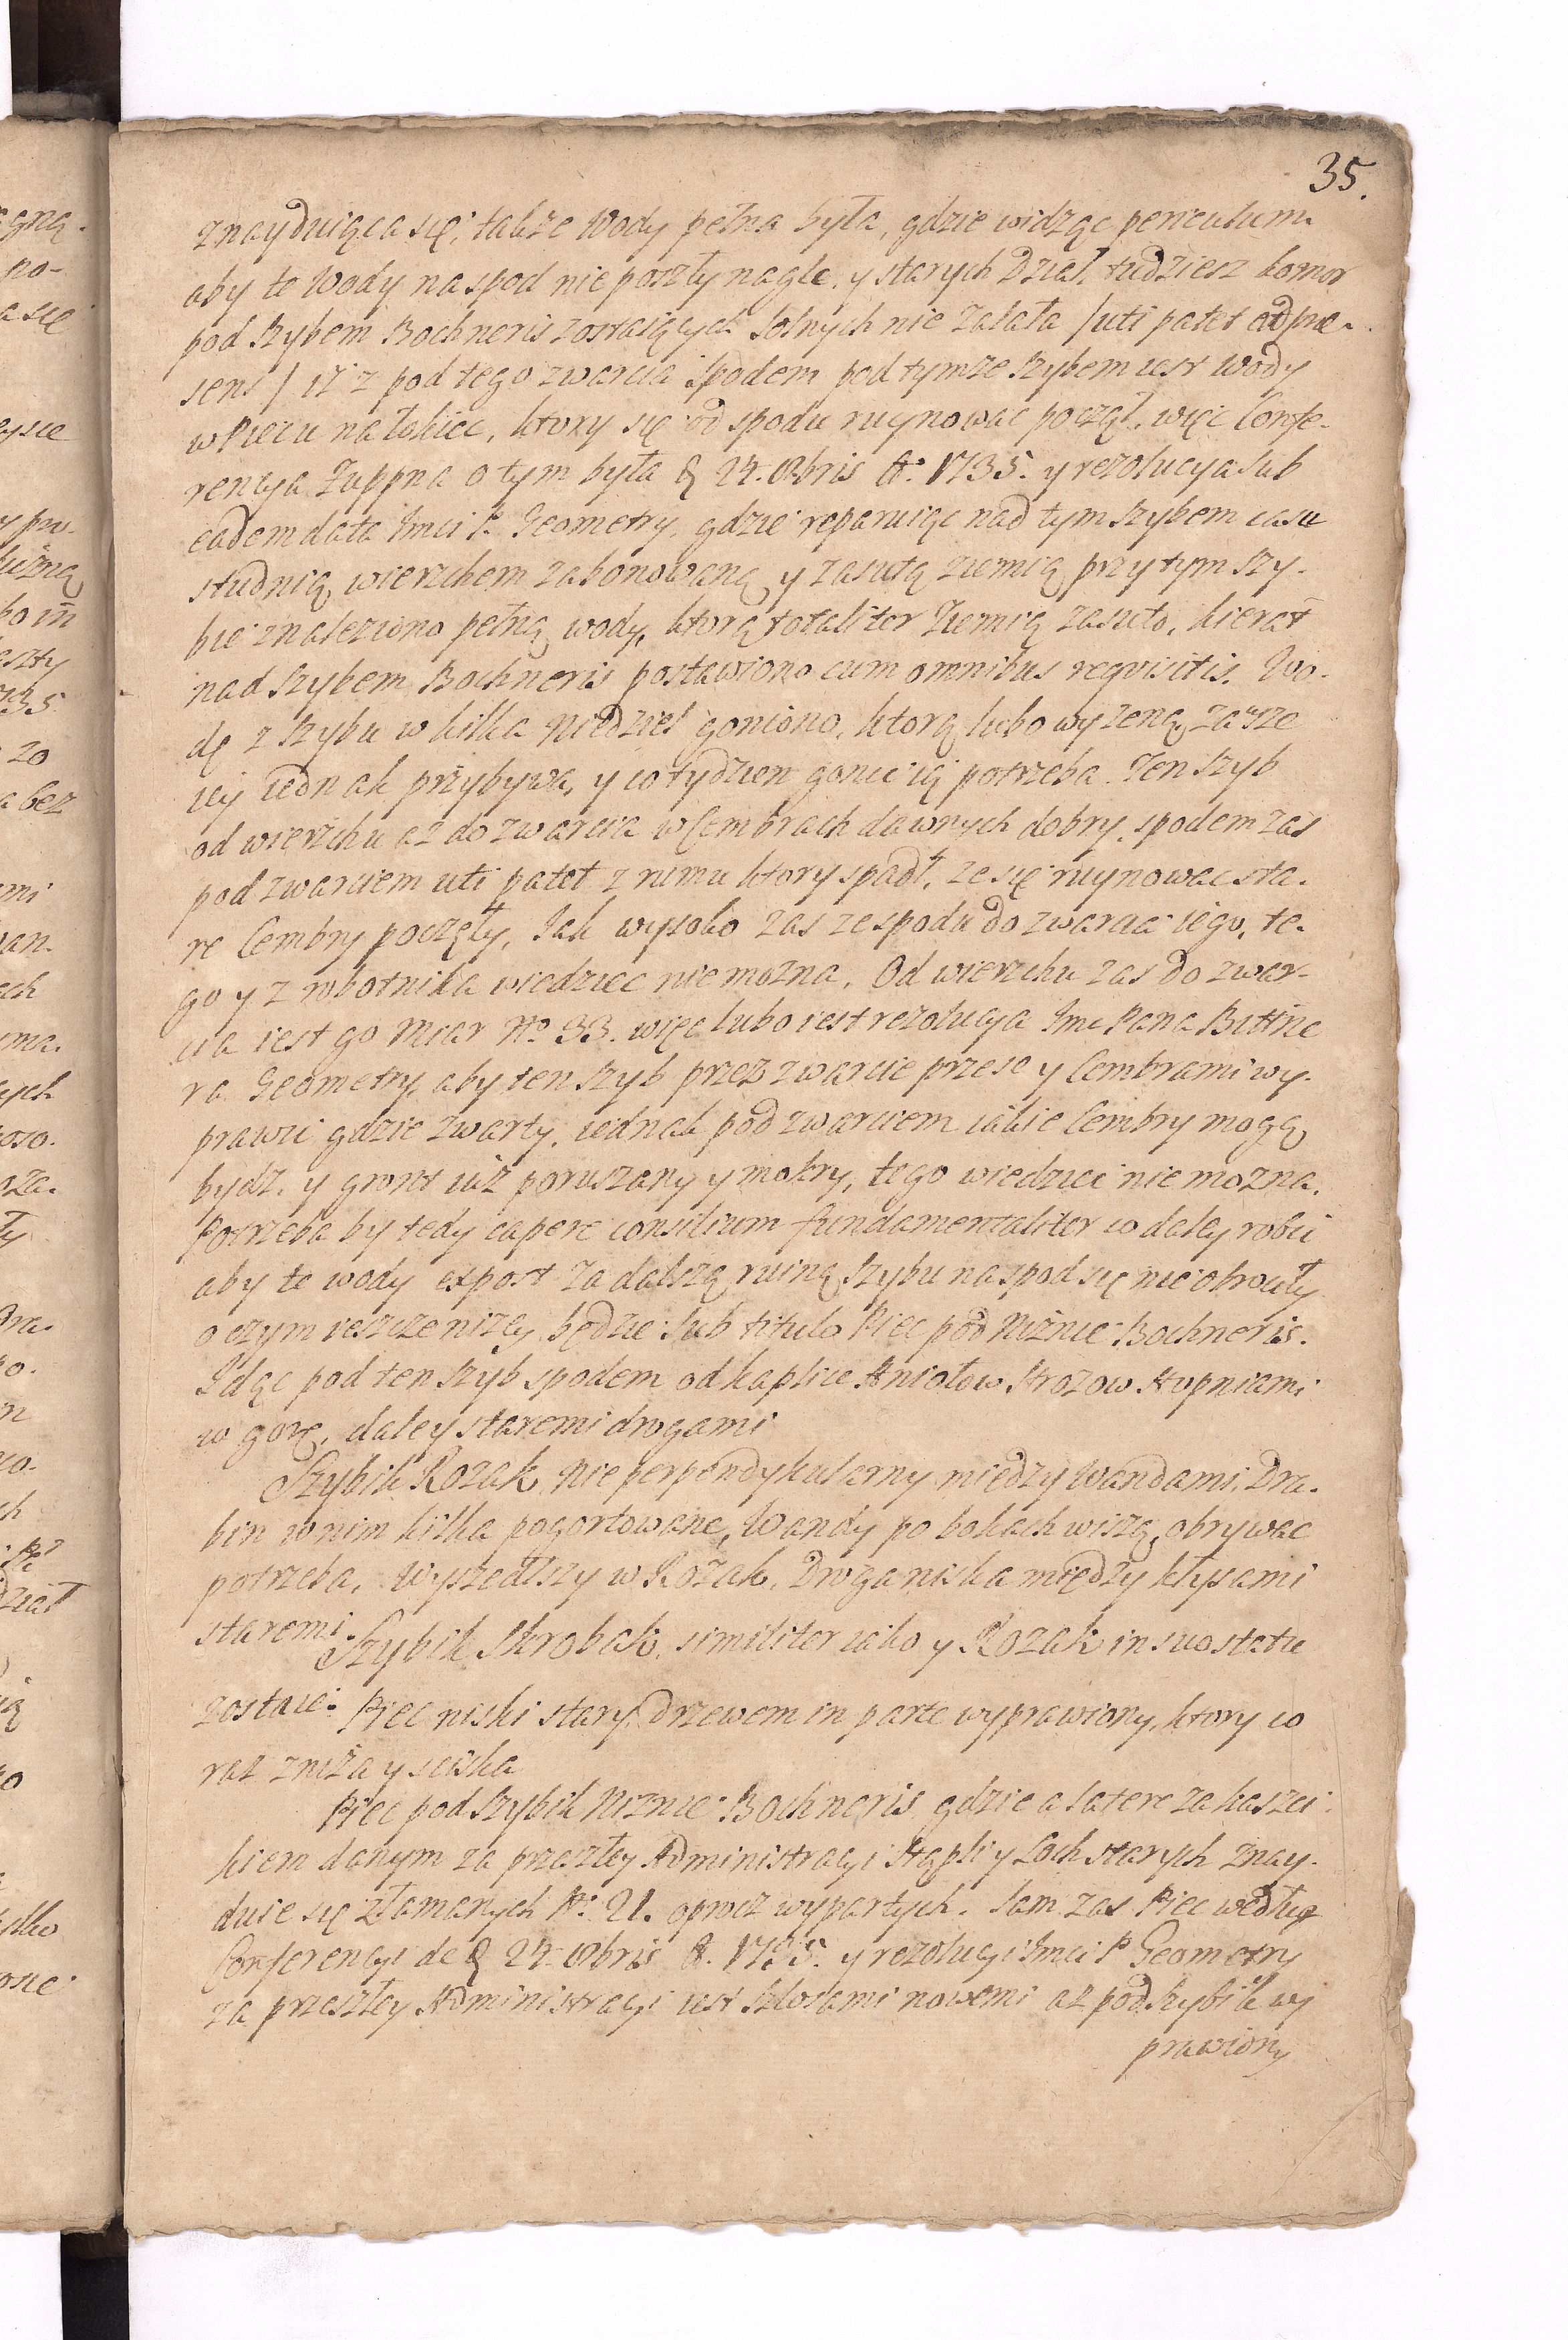 35.
znayduiąca się, także Wody pełna była, gdzie widząc periculum
aby te Wody na spod nie poszły nagle, y starych Dział, tudziesz komor
pod Szybem Bochneris zostaiących Solnych nie zalała /uti patet ad præ-
sens/ iż z pod tego zwarcia spodem pod tymze Szybem iest wody
w Piecu na łokiec, ktory się od spodu ruynowac począł, więc Confe-
rencya Zuppna o tym była d 24. Obris Ao. 1735. y rezolucya sub
eadem data Jmci P. Geometry, gdzie reparuiąc nad tym szybem casu
studnią wierzchem zabonowaną y zasutą ziemią przy tym Szy-
bie znaleziono pełną wody, ktorą totaliter Ziemią zasuto, kierat
nad Szybem Bochneris postawiono cum omnibus reqvisitis. Wo-
dę z Szybu w kilka Niedziel goniono, ktorą lubo wyzeną, zawsze
iey iednak przybywa, y co tydzien gonic ią potrzeba. Ten Szyb
od wierzchu az do zwarcia w Cembrach dawnych dobry, spodem zas
pod zwarciem uti patet z rumu ktory spadł, ze się ruynowac sta-
re Cembry poczęły, Jak wysoko zas ze spodu do zwarcia iego, te-
go y z robotnika wiedziec nie mozna. Od wierzchu zas do zwar-
cia iest go Miar No 33. więc lubo iest rezolucya Jmc Pana Bittne
ra Geometry, aby ten szyb przez zwarcie przesc y Cembrami wy-
prawic gdzie zwarty, iednak pod zwarciem iakie Cembry mogą
bydz, y gront iuż poruszany y mokry, tego wiedziec nie mozna.
Potrzeba by tedy capere consilium fundamentaliter co daley robic
aby te wody expost za dalszą ruiną Szybu na spod się nie obrociły
o czym ieszcze nizey będzie sub titulo Piec pod Niżnie Bochneris.
Idąc pod ten szyb spodem od kaplice Aniołow Strozow stopniami
w gorę, daley staremi drogami
Szybik Kozak, nie perpendykularny między Wandami, Dra-
bin w nim kilka pogortowane, Wandy po bokach wiszą, obrywac
potrzeba. wyszedłszy w Kozak, Droga niska między kłysami
staremi.
Szybik Skrobak, similiter iako y Kozak in suo statu
zostaie. Piec niski stary Drzewem in parte wyprawiony, ktory co
raz zniża y sciska
Piec pod Szybik Niznie Bochneris gdzie a latere za kaszci-
kiem danym za przeszłey Administracyi Stąpli y Loch starych znay-
duie się złamanych No. 21. oprocz wypartych. Sam zas Piec według
Conferencyi de d 24. Obris A. 1735. y rezolucyi Jmci P Geometry
za przeszłey Administracyi iest Szlosami nowemi az pod Szybik wy
prawiony